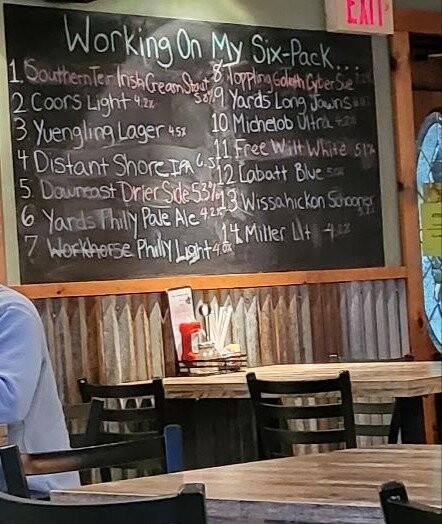 EXIT
Working On My Six-Pack...
1. Southern Tier Irish Cream Stout 5.8%
2 Coors Light 4.2%
3 Yuengling Lager 4.5%
4 Distant Shore IPA
5. Downeast Drier Side 5.3%
6 Yards Philly Pale Ale 4.2%
7 Workhorse Philly Light 4.0%
8 Toppling Goliath Cyber Sue
9 Yards Long Jawns
10 Michelob Ultra 4.2%
11 Free Will White 5.1%
12 Labatt Blue
13 Wissahickon Schooner
14 Miller Lit 4.2%